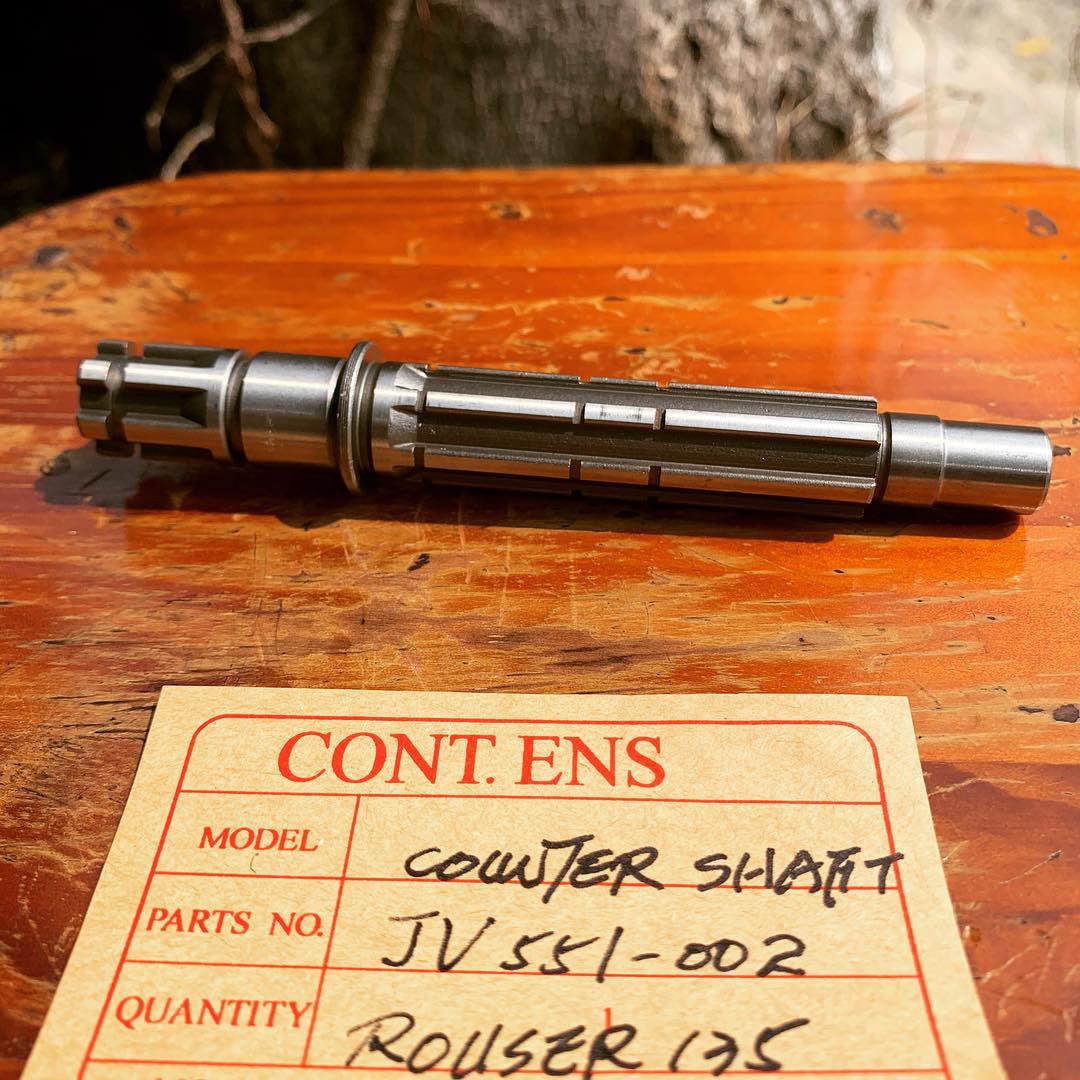 CONT. ENS
MODEL COUNTER SHAFT
PARTS NO. JV551-002
QUANTITY ROUSER 135